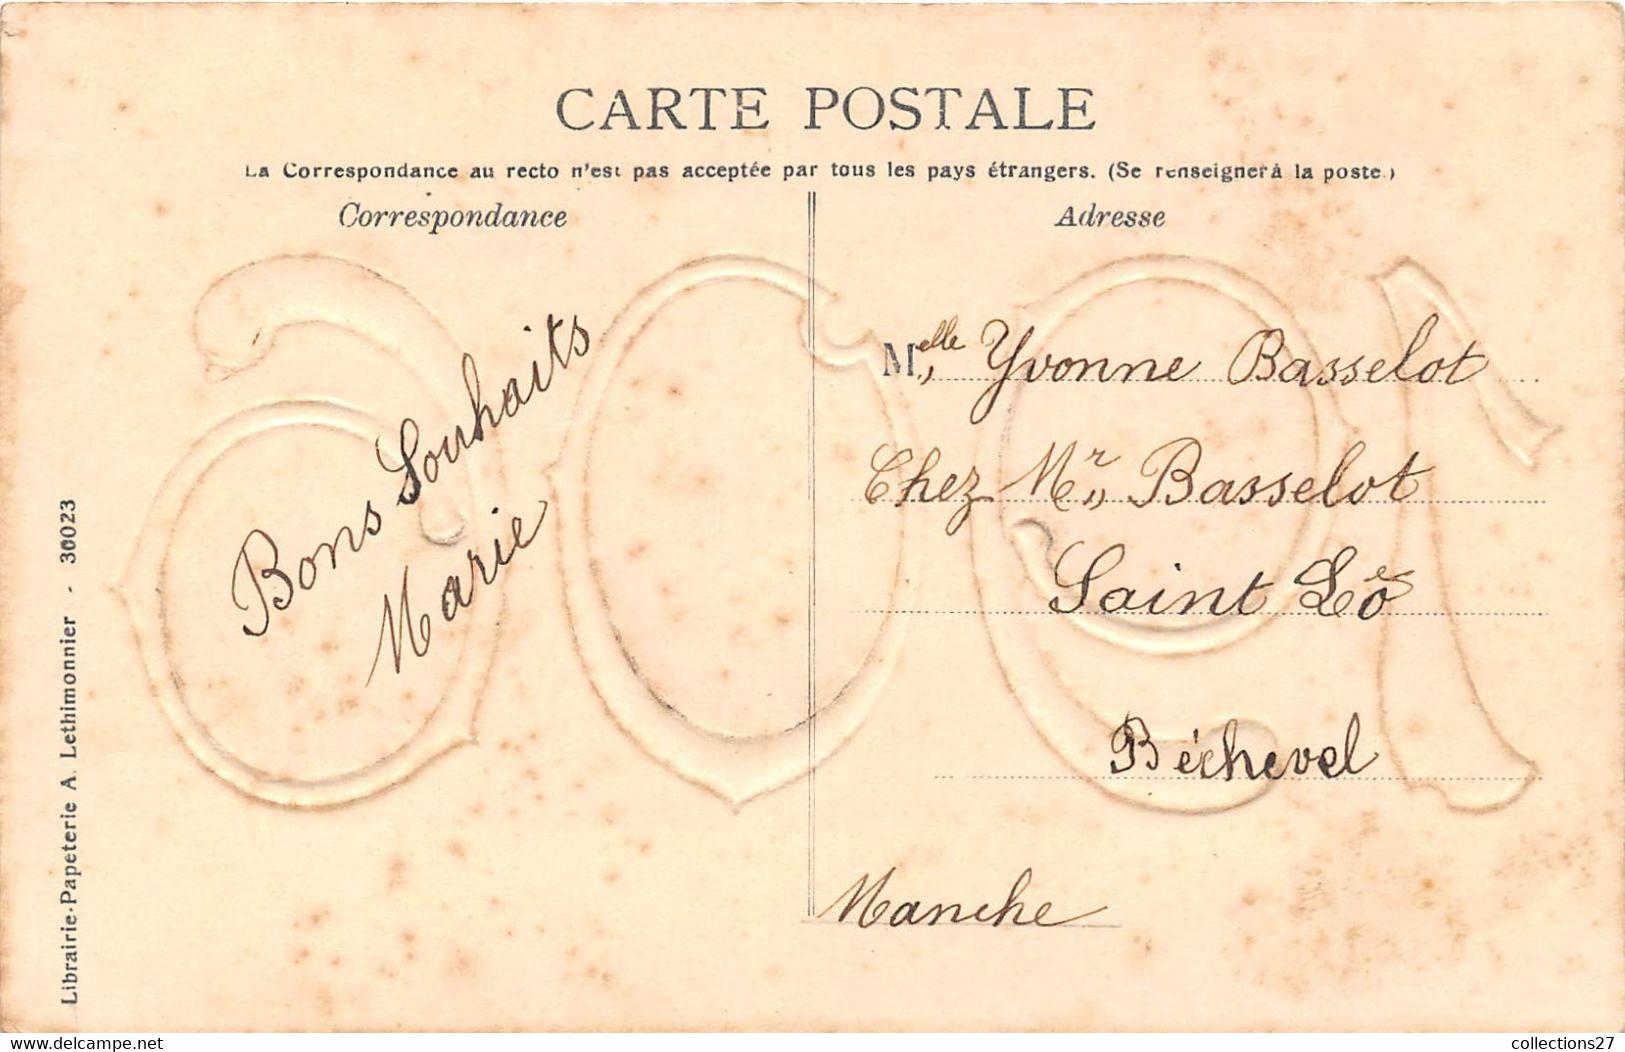 CARTE POSTALE
La Correspondance au recto n'est pas acceptée par tous les pays étrangers. (Se renseigner à la poste.)
Correspondance
Adresse
Bons Souhaits
Marie
Melle Yvonne Basselot
Chez Mr Basselot
Saint Lô
Béchevel
Manche
Librairie-Papeterie A. Lethimonnier - 30023
www.delcampe.net
collections27